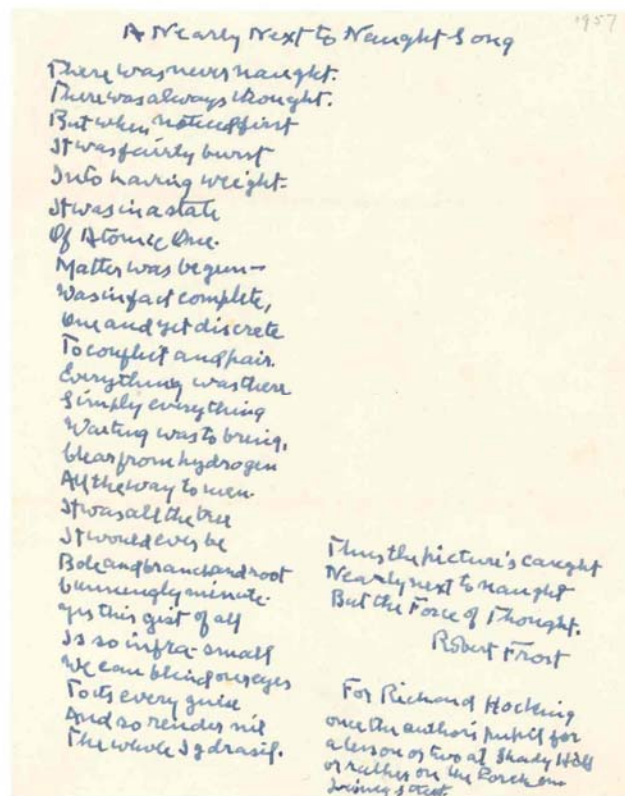 1957
A Nearly Next to Naught Song
There was never naught.
There was always thought.
But when noticed first
It was fairly burst
Into having weight-
It was in a state
Of Atomic One.
Matter was begun—
Was in fact complete,
One and yet discrete
To conflict and pair.
Everything was there
Simply everything
Waiting was to bring,
Clear from hydrogen
All the way to men.
It was all the tree
It would ever be
Bole and branch and root
Cunningly minute.
Yes this gist of all
Is so infra-small
We can blind our eyes
To its every guise
And so render nil
The whole Igdrasil.
Thus the picture's caught
Nearly next to naught
But the Force of Thought.
Robert Frost
For Richard Hocking
once the author's pupil for
a lesson or two at Shady Hill
or rather on the Porch on
Street